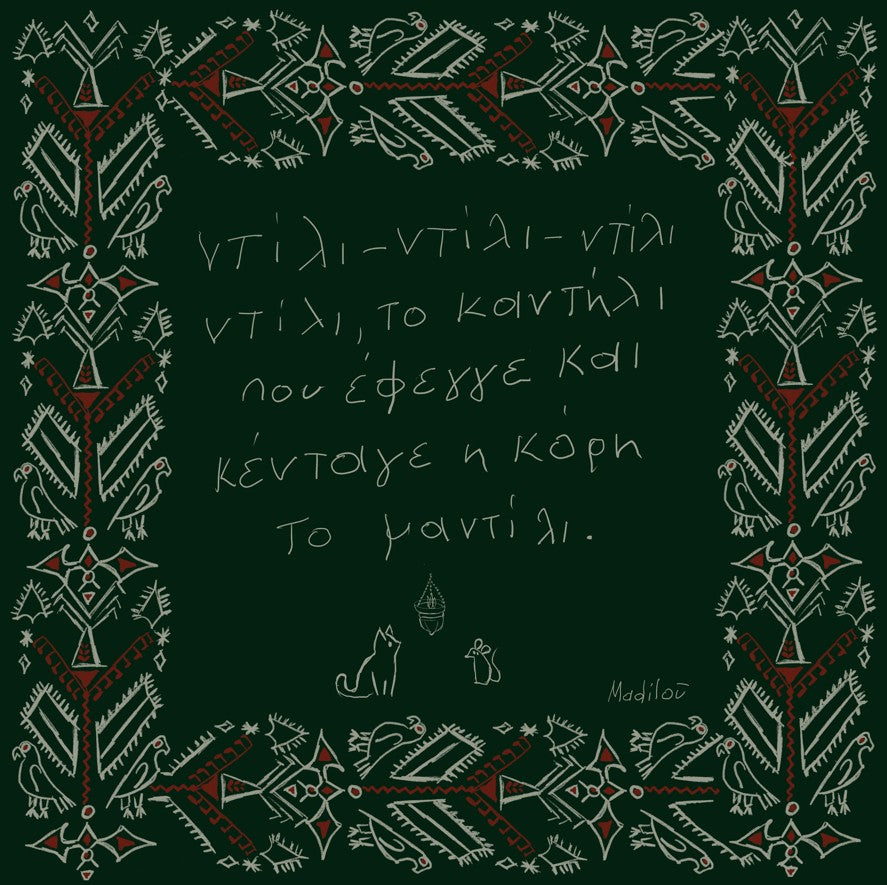 ντίλι-ντίλι-ντίλι
ντίλι, το καντήλι
που έφεγγε και
κένταγε η κόρη
το μαντίλι.
Madiloū